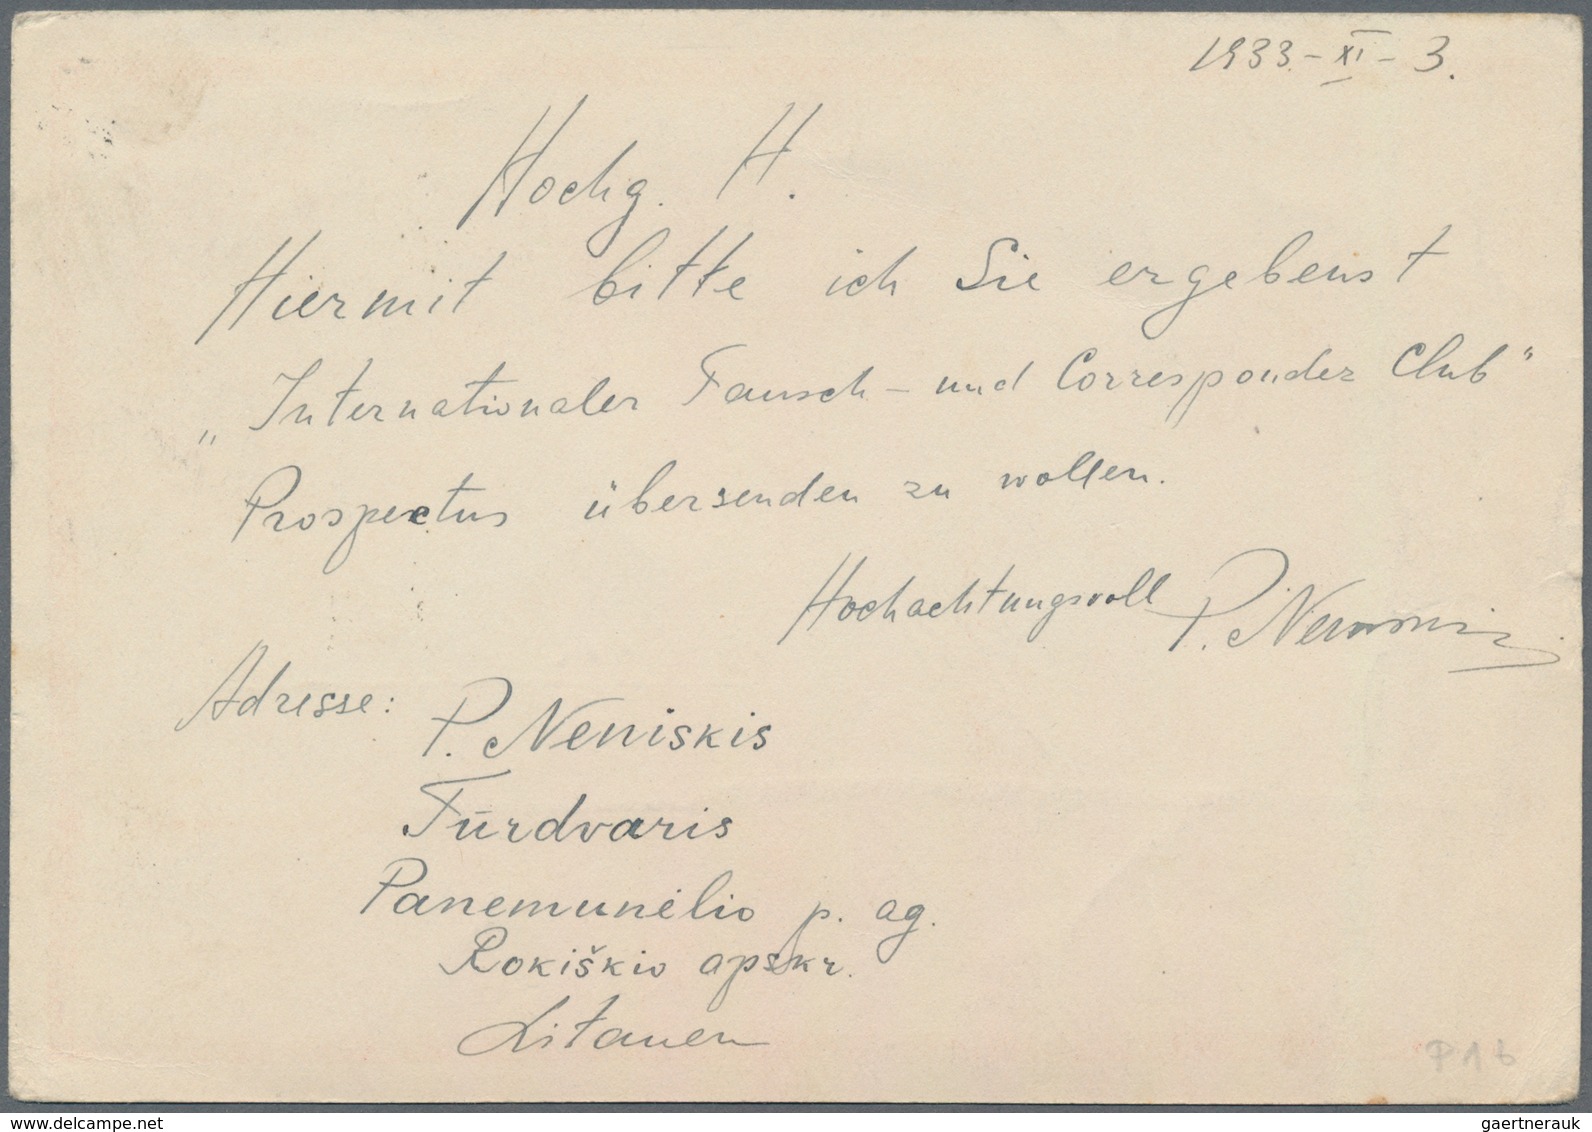 1933.-XI-3.
Hochg. H.
Hiermit bitte ich Sie ergebenst
„Internationaler Tausch- und Correspondez Club"
Prospectus übersenden zu wollen.
Hochachtungsvoll P.
Adresse: P. Neniskis
Tūrdvaris
Panemunėlio p. ag.
Rokiškio apskr.
Litauen
P 1 b
www.delcampe.net
gaertnerauk